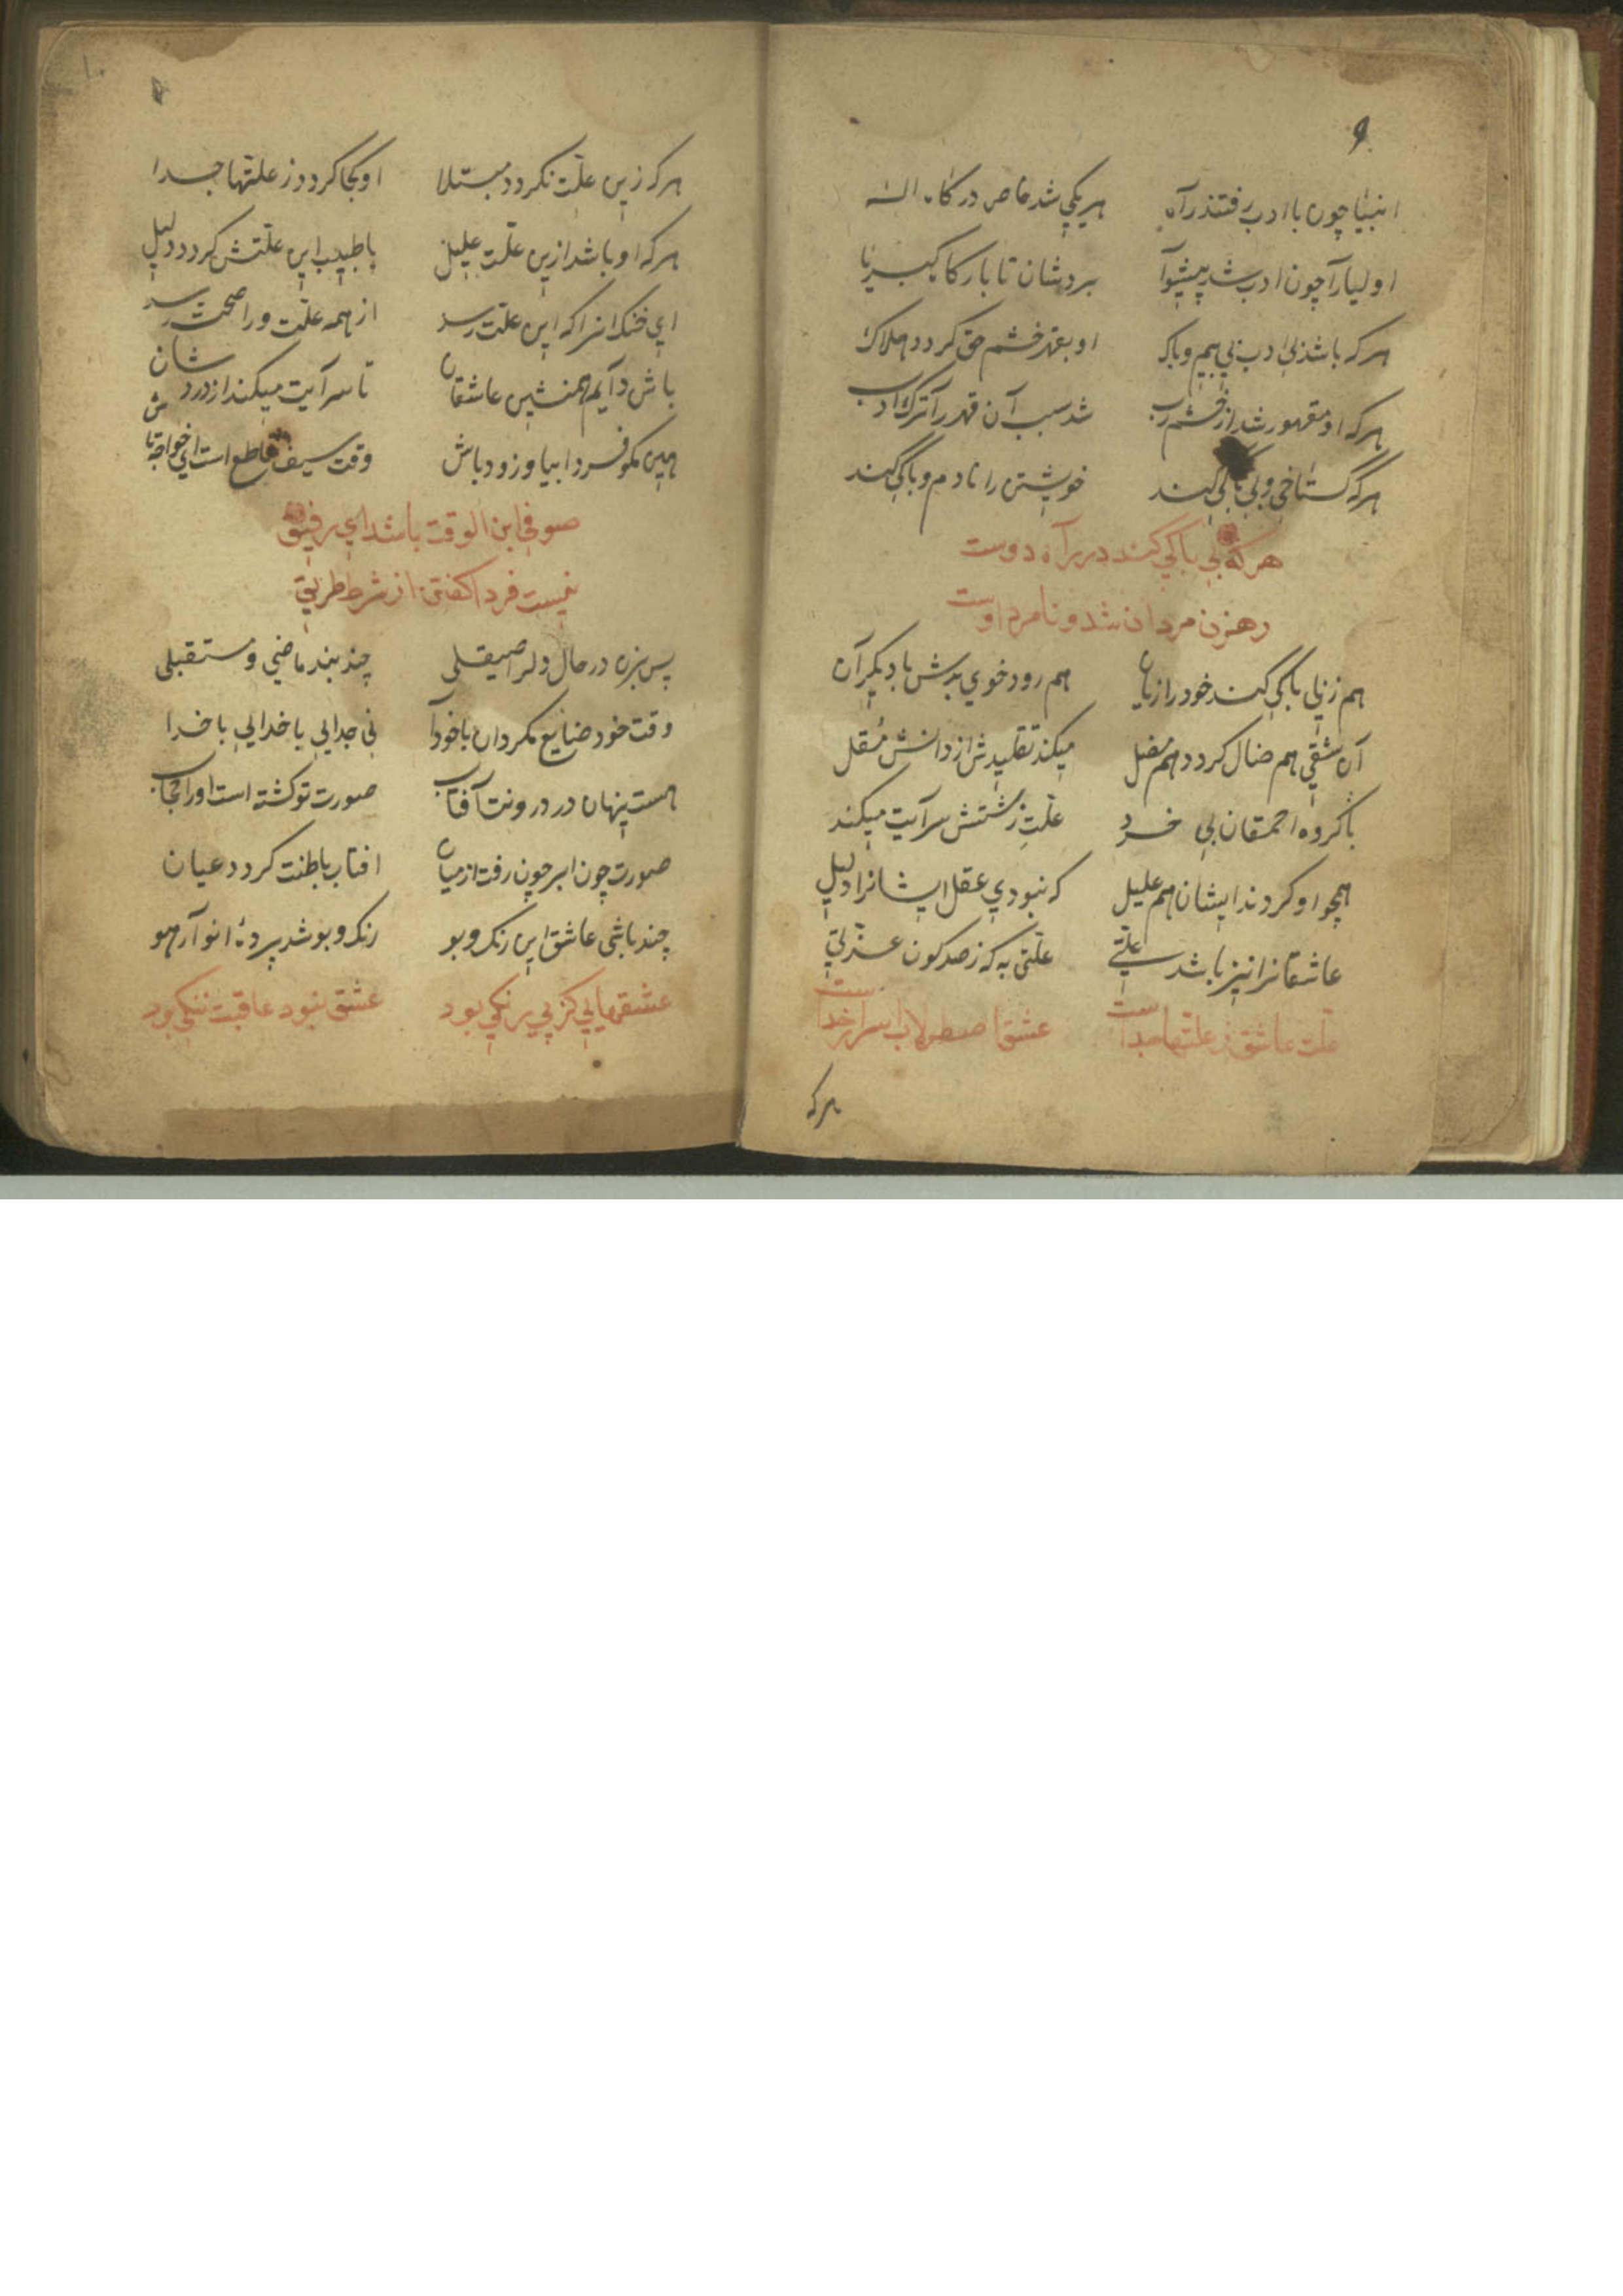 ۹
انبیا چون با ادب رفتند راه هر یکی شد خاص درگاه اله
اولیا را چون ادب شد پیشوا بردشان تا بارگاه کبریا
هر که باشد بی ادب بی بیم و باک او بقهر خشم حق کردد هلاک
هر که او مقهور شد از خشم رب شد سبب آن قهر را ترک ادب
هر که گستاخی و بی باکی کند خویشتن را نادم و باکی کند
هر که بی باکی کند در راه دوست
رهزن مردان شد و نامرد اوست
هم زنی باکی کند خود را زیان هم رود خوی بدش با دیکران
آن شقی هم ضال کردد هم مضل میکند تقلیدش از دانش مقل
با کروه احمقان بی خرد علت زشتش سرآیت میکند
همچو او کردند ایشان هم علیل که نبودی عقل ایشانرا دلیل
عاشقانرا نیز باشد علتی علتی به که ز صد کون عزتی
علت عاشق ز علتها جداست عشق اصطرلاب اسرار خداست
هر که
۱۰
هر که زین علت نکردد مبتلا او کجا کردد ز علتها جدا
هر که او باشد ازین علت علیل با طبیب این علتش کردد دلیل
ای خنک انرا که این علت رسد از همه علت ورا صحت رسد
باش دآیم همنشین عاشقان تا سرآیت میکند از درد شان
هین مکو فردا بیا و زود باش وقت سیف قاطع است ای خواجه تاش
صوفی ابن الوقت باشد ای رفیق
نیست فردا کفتن از شرط طریق
پس بزن در حال دلرا صیقلی چند بند ماضی و مستقبلی
وقت خود ضایع مکردان با خودآ نی جدایی با خدایی با خدا
هست پنهان در درونت آفتاب صورت تو کشته است اورا حجاب
صورت چون ابر چون رفت از میان افتاب باطنت کردد عیان
چند باشی عاشق این رنک و بو رنک و بو شد پردۀ انوآر هو
عشقهایی کز پی رنکی بود عشق نبود عاقبت ننکی بود